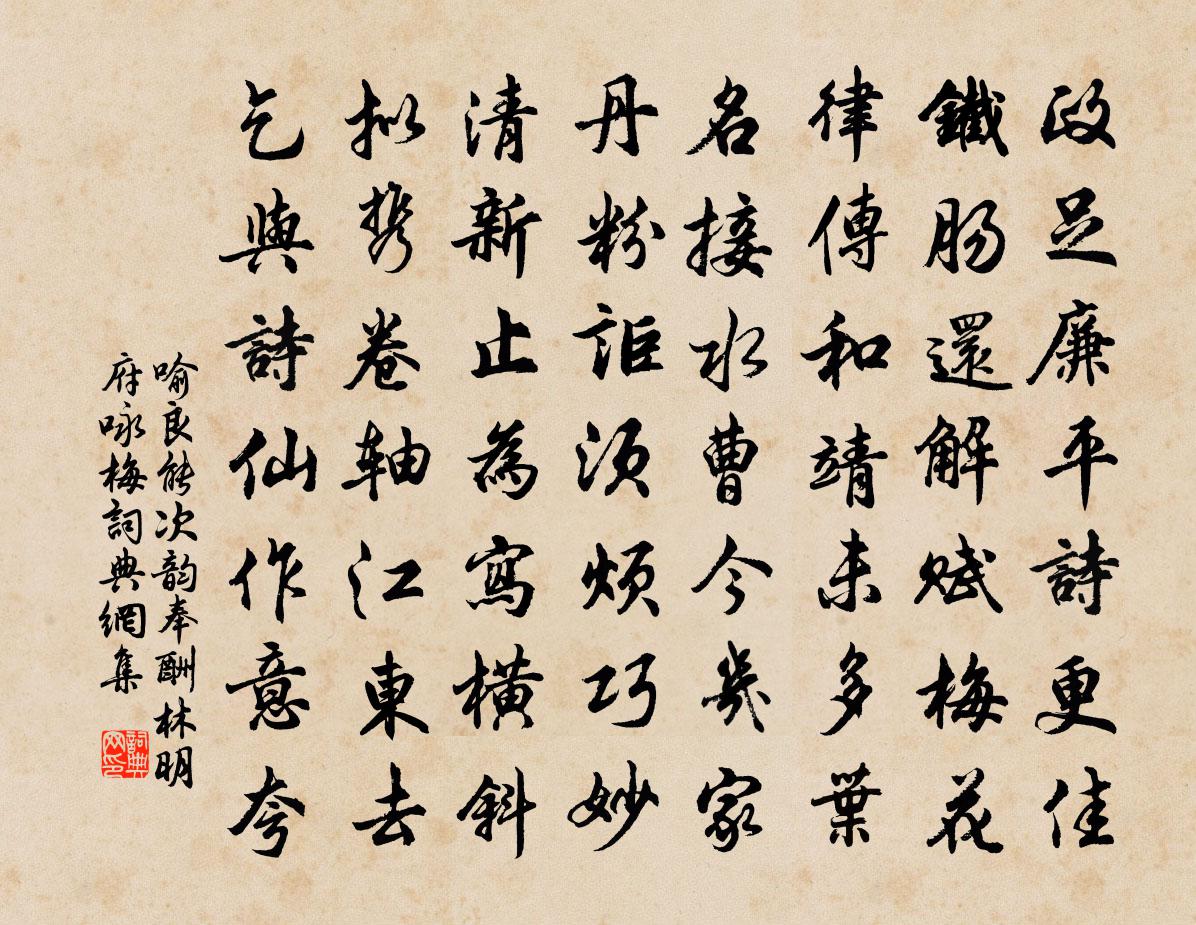 政足廉平詩更佳
鐵腸還解賦梅花
律傳和靖未多葉
名接水曹今幾家
丹粉詎須煩巧妙
清新止為寫橫斜
擬携卷軸江東去
乞與詩仙作意夸
喻良能次韵奉酬林明
府咏梅詞典網集
詞典
网印